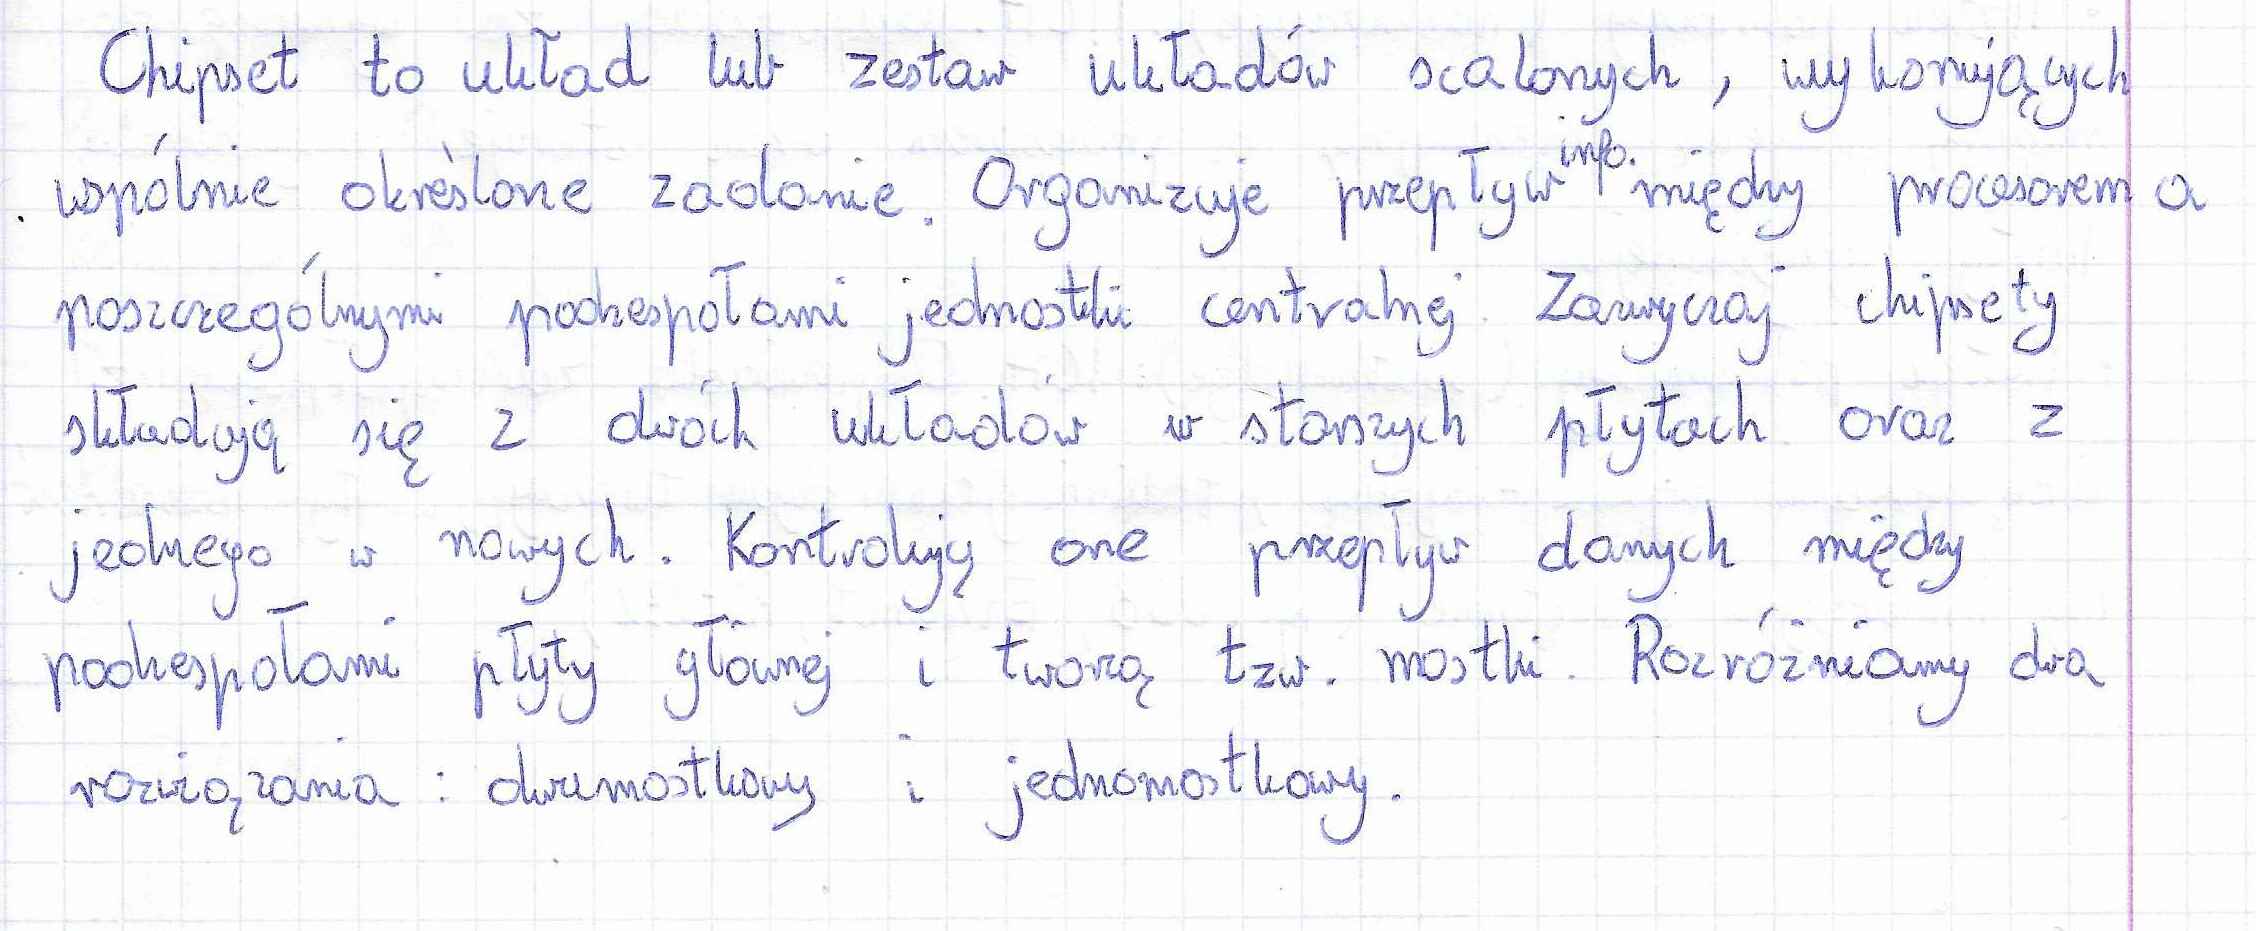 Chipset to układ lub zestaw układów scalonych, wykonujących
wspólnie określone zadanie. Organizuje przepływ info. między procesorem a
poszczególnymi podzespołami jednostki centralnej. Zazwyczaj chipsety
składają się z dwóch układów w starszych płytach oraz z
jednego w nowych. Kontrolują one przepływ danych między
podzespołami płyty głównej i tworzą tzw. mostki. Rozróżniamy dwa
rozwiązania : dwumostkowy i jednomostkowy.